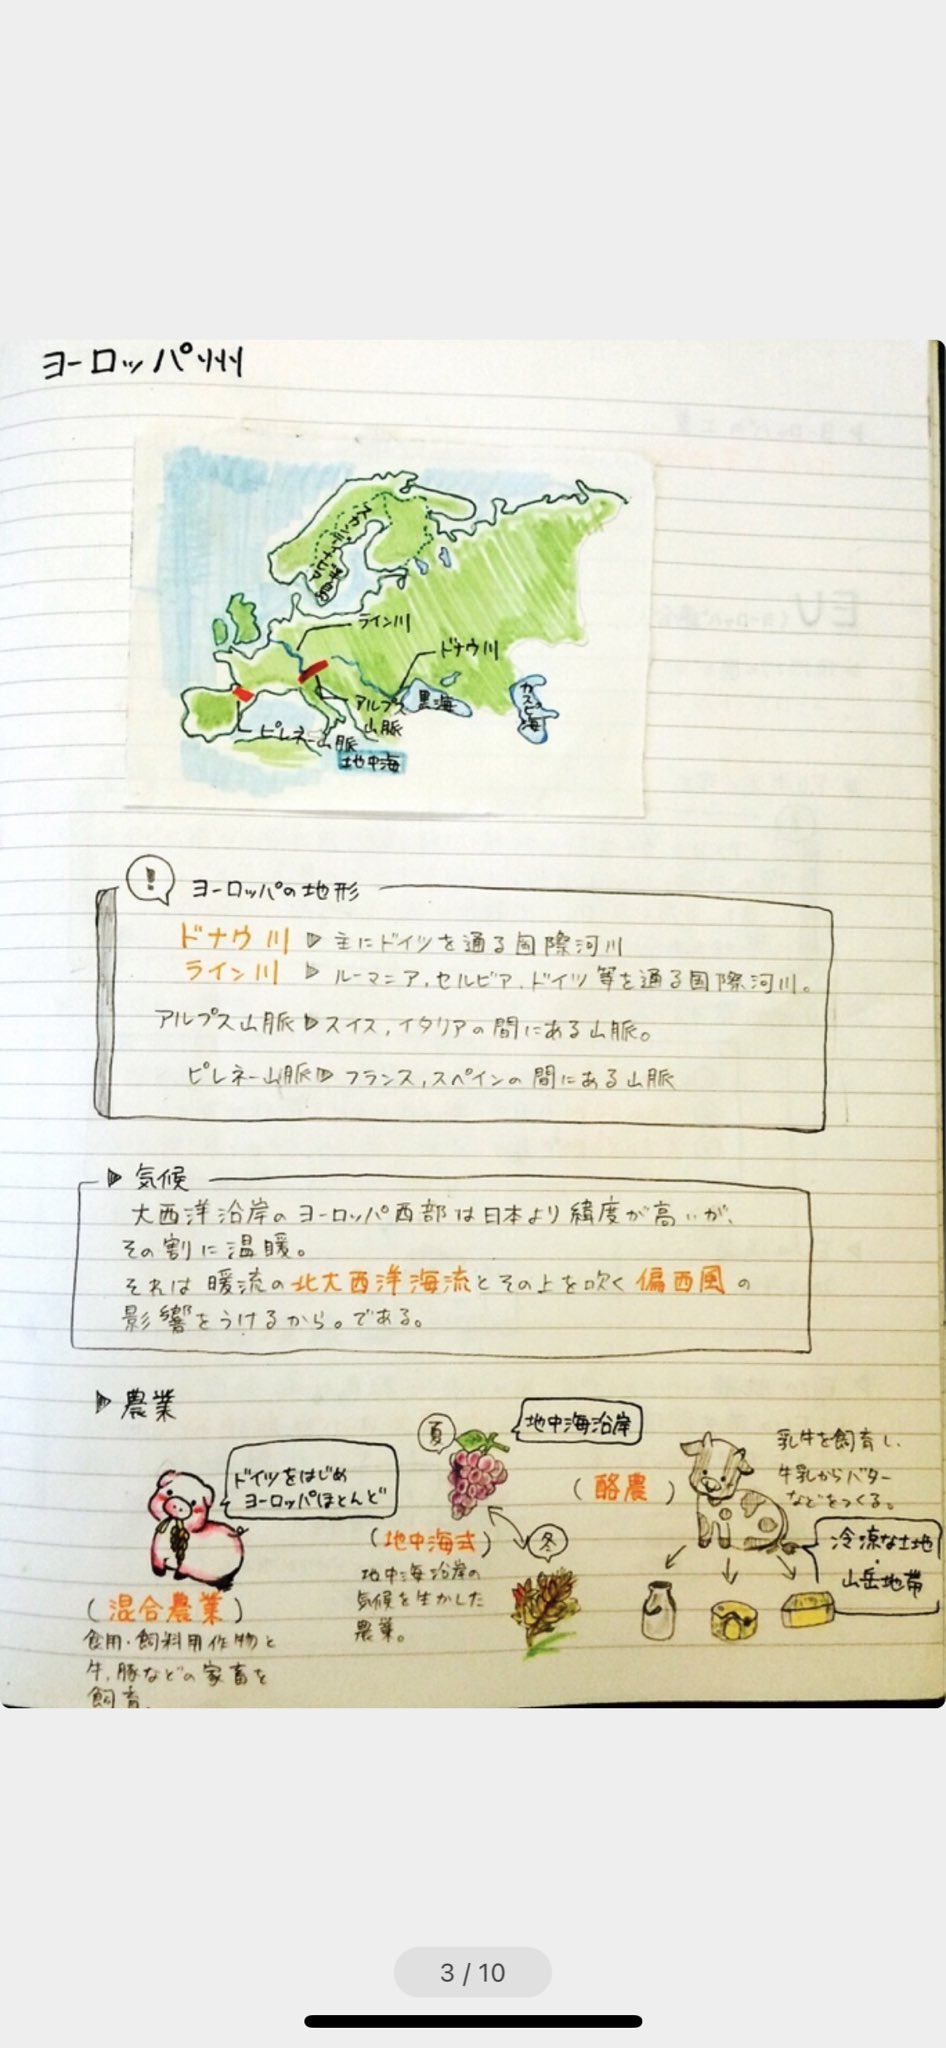 ヨーロッパ州
スカンディナビア
半島
ライン川
ドナウ川
黒海
カスピ海
アルプス
山脈
ピレネー山脈
地中海
! ヨーロッパの地形
ドナウ川 ▷ 主にドイツを通る国際河川
ライン川 ▷ ルーマニア、セルビア、ドイツ等を通る国際河川。
アルプス山脈 ▷ スイス、イタリアの間にある山脈。
ピレネー山脈 ▷ フランス、スペインの間にある山脈
▶ 気候
大西洋沿岸のヨーロッパ西部は日本より緯度が高いが、
その割に温暖。
それは暖流の北大西洋海流とその上を吹く偏西風の
影響をうけるから。である。
▶ 農業
ドイツをはじめ
ヨーロッパほとんど
(混合農業)
食用・飼料用作物と
牛、豚などの家畜を
飼育。
夏
地中海沿岸
(地中海式)
冬
地中海沿岸の
気候を生かした
農業。
(酪農)
乳牛を飼育し、
牛乳からバター
などをつくる。
冷涼な土地
・
山岳地帯
EU
3 / 10